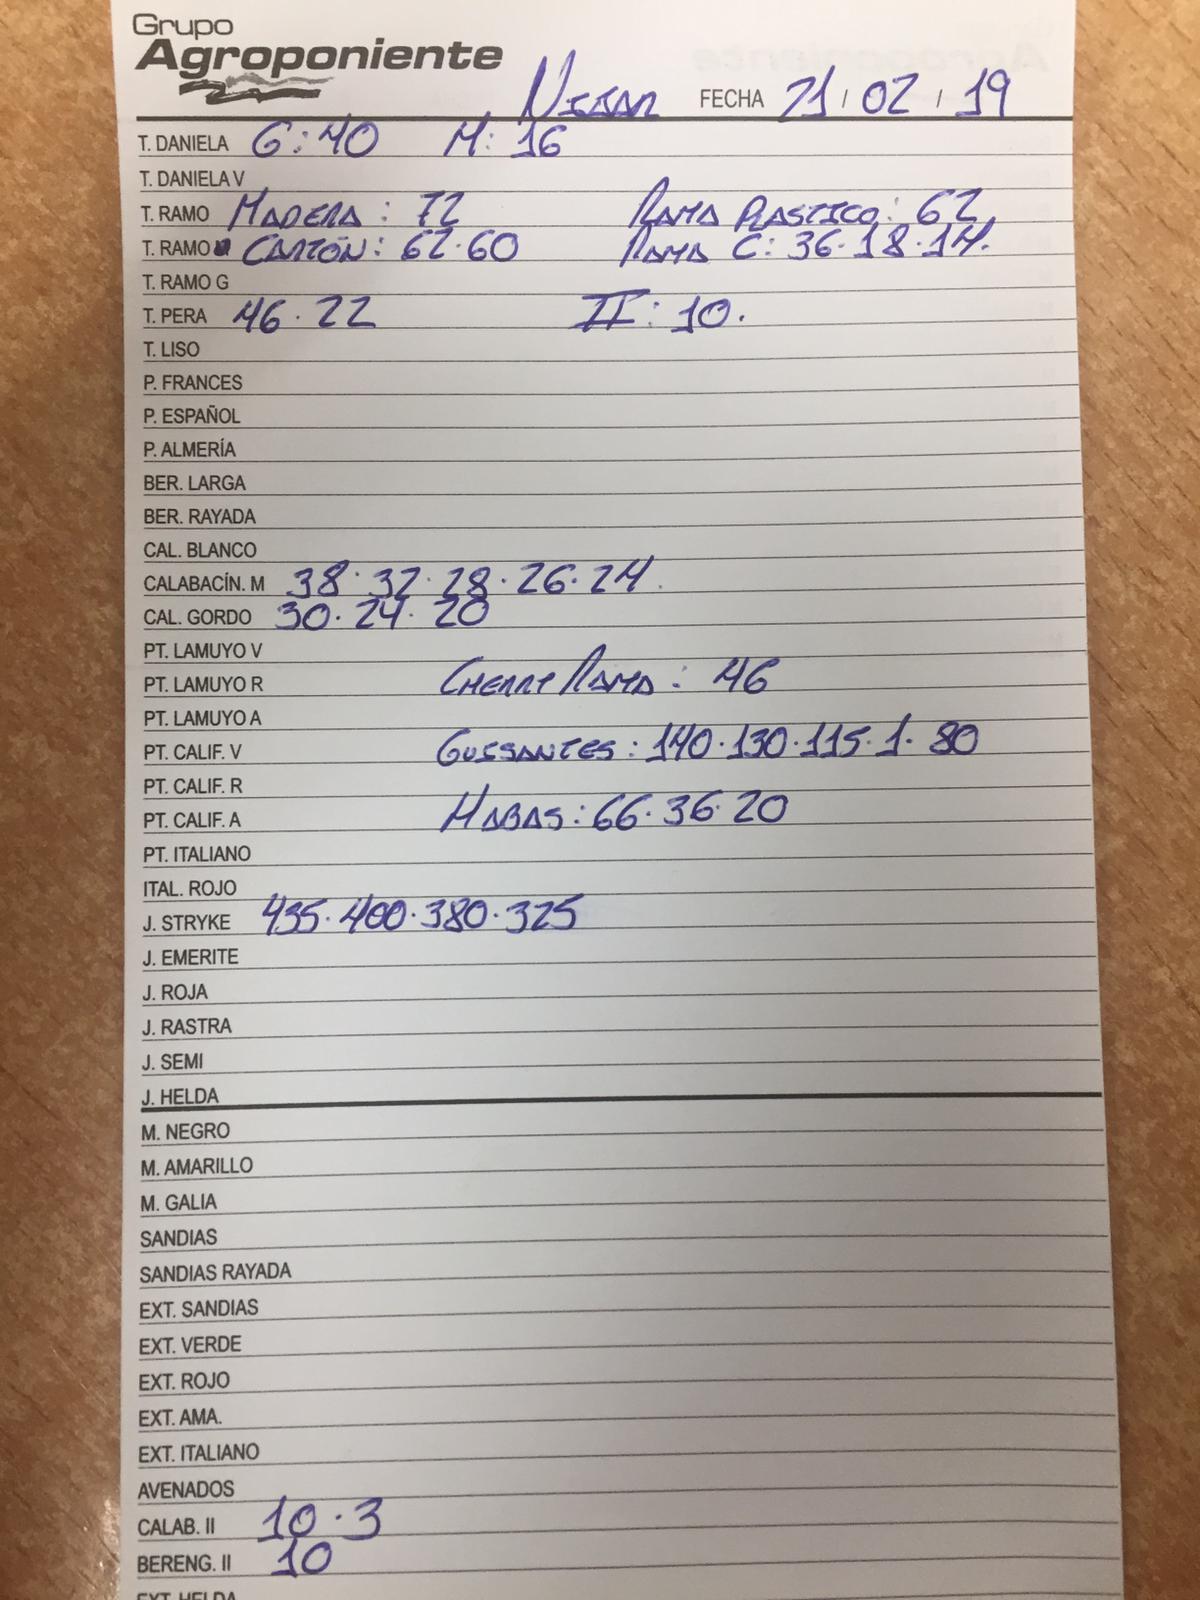 Grupo
Agroponiente
NIJAR FECHA 21 / 02 / 19
T. DANIELA G: 40 M: 16
T. DANELA V
T. RAMO MADERA: 72 RAMA PLASTICO: 62
T. RAMO CARTÓN: 62·60 RAMA C: 36·18·14.
T. RAMO G
T. PERA 46·22 II: 10.
T. LISO
P. FRANCES
P. ESPAÑOL
P. ALMERÍA
BER. LARGA
BER. RAYADA
CAL. BLANCO
CALABACÍN. M 38·32·28·26·24.
CAL. GORDO 30·24·20
PT. LAMUYO V
PT. LAMUYO R CHERRY RAMA: 46
PT. LAMUYO A
PT. CALIF. V GUISANTES: 140·130·115·1·80
PT. CALIF. R
PT. CALIF. A HABAS: 66·36·20
PT. ITALIANO
ITAL. ROJO
J. STRYKE 435·400·380·325
J. EMERITE
J. ROJA
J. RASTRA
J. SEMI
J. HELDA
M. NEGRO
M. AMARILLO
M. GALIA
SANDIAS
SANDIAS RAYADA
EXT. SANDIAS
EXT. VERDE
EXT. ROJO
EXT. AMA.
EXT. ITALIANO
AVENADOS
CALAB. II 10·3
BERENG. II 10
EXT. HELDA